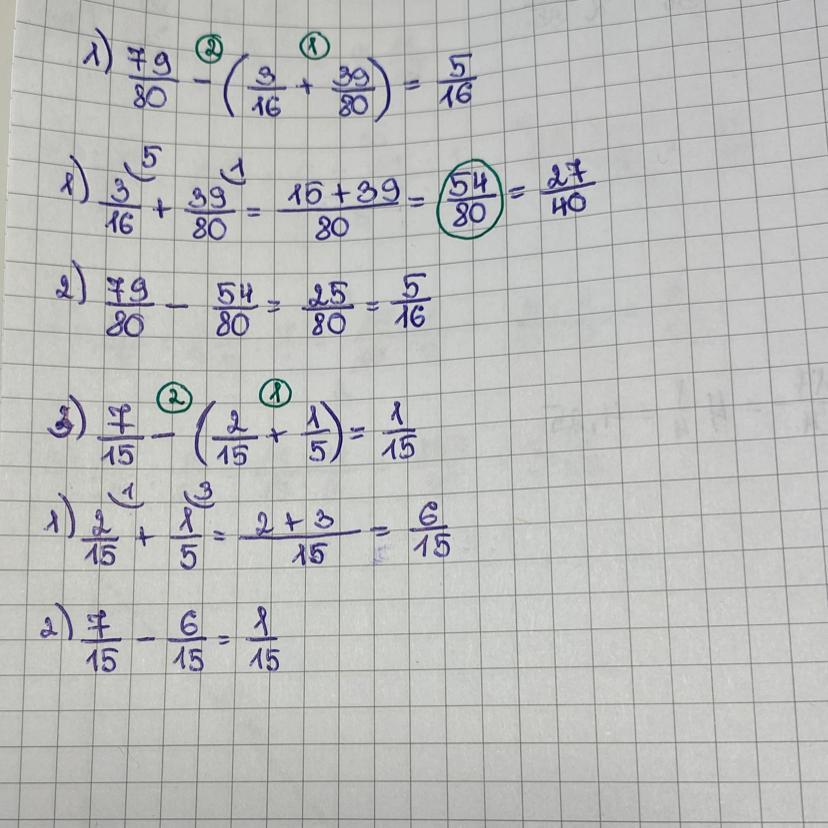 ② ①
1) 79/80 - (3/16 + 39/80) = 5/16
1) 3/16 ⁽⁵ + 39/80 ⁽¹ = 15+39/80 = 54/80 = 27/40
2) 79/80 - 54/80 = 25/80 = 5/16
② ①
3) 7/15 - (2/15 + 1/5) = 1/15
1) 2/15 ⁽¹ + 1/5 ⁽³ = 2+3/15 = 6/15
2) 7/15 - 6/15 = 1/15